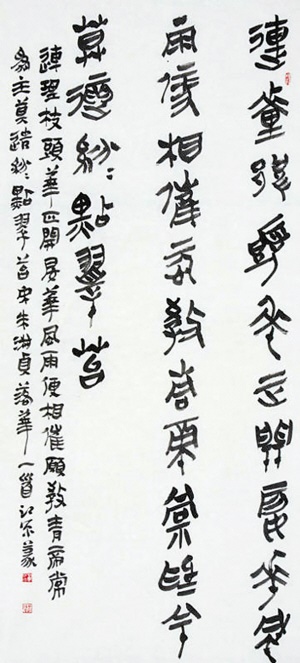 連理枝頭華正開妒華風
雨便相催願教青帝常為主
莫遣紛〻點翠苔
連理枝頭華正開妒華風雨便相催願教青帝常
為主莫遣紛〻點翠苔宋朱淑貞落華一首